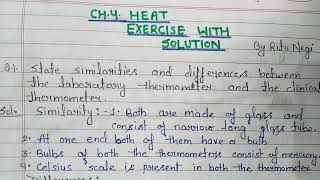 CH.4. HEAT
EXERCISE WITH
SOLUTION
By Ritu Negi
Q.1. State similarities and differences between
the laboratory thermometer and the clinical
thermometer.
Solo Similarity:-1. Both are made of glass and
consist of narrow long glass tube.
2. At one end both of them have a bulb.
3. Bulbs of both the thermometers consist of mercury.
4. Celsius scale is present in both the thermometer